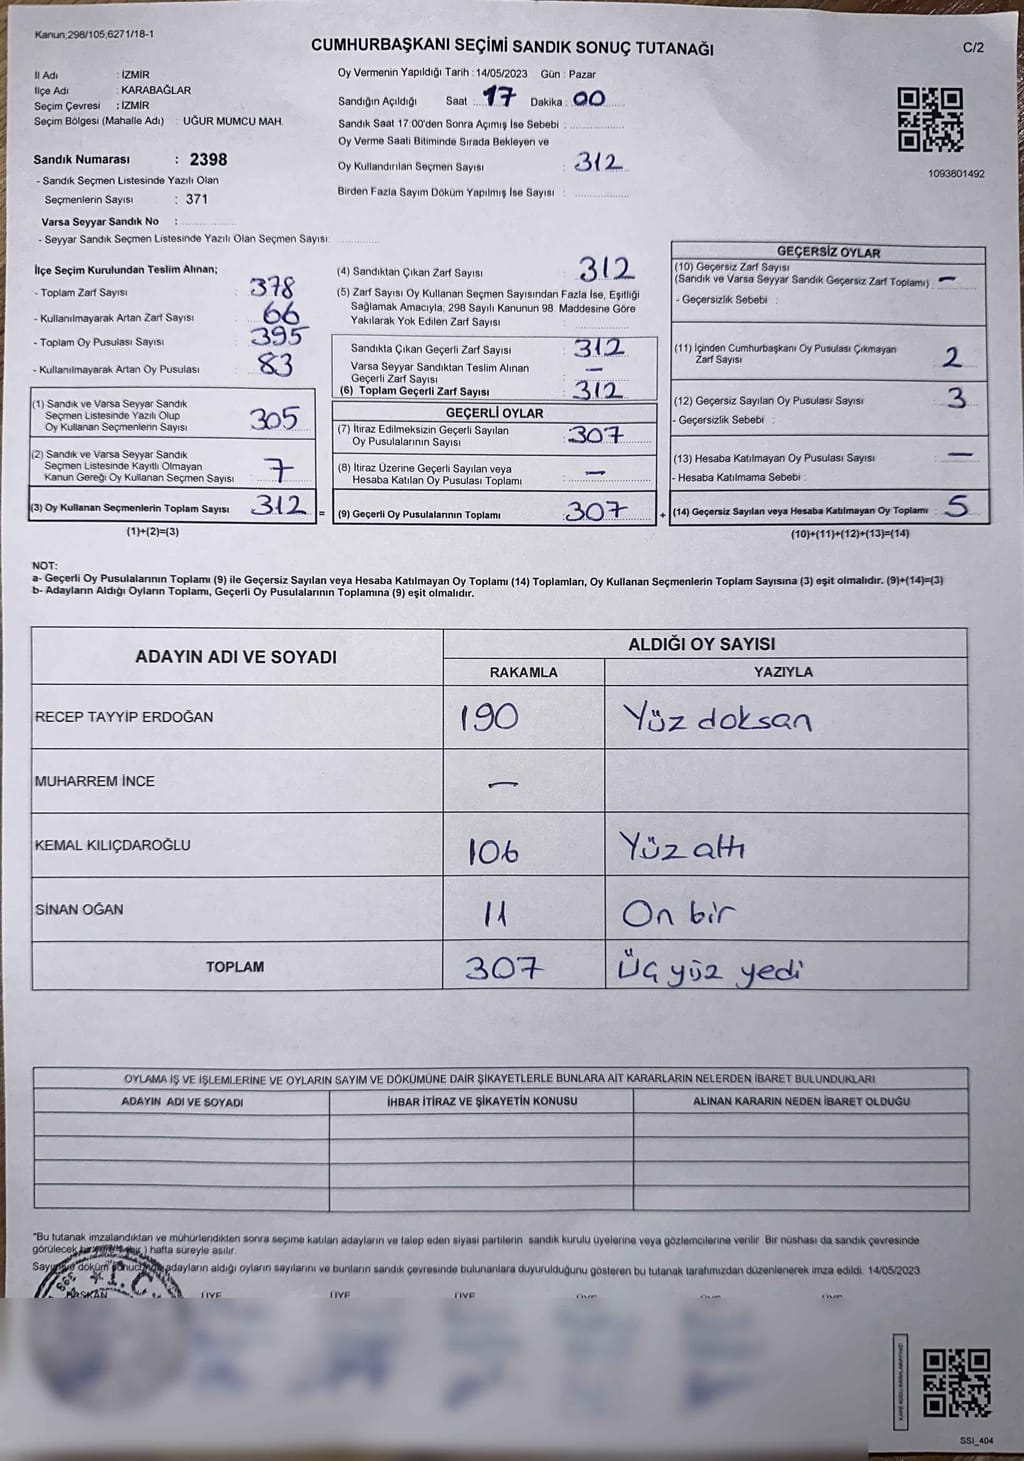 Kanun;298/105;6271/18-1
CUMHURBAŞKANI SEÇİMİ SANDIK SONUÇ TUTANAĞI
C/2
İl Adı : İZMİR
İlçe Adı : KARABAĞLAR
Seçim Çevresi : İZMİR
Seçim Bölgesi (Mahalle Adı) : UĞUR MUMCU MAH.
Sandık Numarası : 2398
- Sandık Seçmen Listesinde Yazılı Olan
Seçmenlerin Sayısı : 371
Varsa Seyyar Sandık No :
- Seyyar Sandık Seçmen Listesinde Yazılı Olan Seçmen Sayısı:
Oy Vermenin Yapıldığı Tarih : 14/05/2023 Gün : Pazar
Sandığın Açıldığı Saat : 17 Dakika : 00
Sandık Saat 17:00'den Sonra Açımış İse Sebebi :
Oy Verme Saati Bitiminde Sırada Bekleyen ve
Oy Kullandırılan Seçmen Sayısı : 312
Birden Fazla Sayım Döküm Yapılmış İse Sayısı :
1093801492
İlçe Seçim Kurulundan Teslim Alınan;
- Toplam Zarf Sayısı : 378
- Kullanılmayarak Artan Zarf Sayısı : 66
- Toplam Oy Pusulası Sayısı : 395
- Kullanılmayarak Artan Oy Pusulası : 83
(1) Sandık ve Varsa Seyyar Sandık
Seçmen Listesinde Yazılı Olup
Oy Kullanan Seçmenlerin Sayısı 305
(2) Sandık ve Varsa Seyyar Sandık
Seçmen Listesinde Kayıtlı Olmayan
Kanun Gereği Oy Kullanan Seçmen Sayısı : 7
(3) Oy Kullanan Seçmenlerin Toplam Sayısı 312 =
(1)+(2)=(3)
(4) Sandıktan Çıkan Zarf Sayısı : 312
(5) Zarf Sayısı Oy Kullanan Seçmen Sayısından Fazla İse, Eşitliği
Sağlamak Amacıyla; 298 Sayılı Kanunun 98. Maddesine Göre
Yakılarak Yok Edilen Zarf Sayısı :
Sandıkta Çıkan Geçerli Zarf Sayısı : 312
Varsa Seyyar Sandıktan Teslim Alınan
Geçerli Zarf Sayısı : —
(6) Toplam Geçerli Zarf Sayısı : 312
GEÇERLİ OYLAR
(7) İtiraz Edilmeksizin Geçerli Sayılan
Oy Pusulalarının Sayısı : 307
(8) İtiraz Üzerine Geçerli Sayılan veya
Hesaba Katılan Oy Pusulası Toplamı : —
(9) Geçerli Oy Pusulalarının Toplamı : 307 +
GEÇERSİZ OYLAR
(10) Geçersiz Zarf Sayısı
(Sandık ve Varsa Seyyar Sandık Geçersiz Zarf Toplamı) : —
- Geçersizlik Sebebi :
(11) İçinden Cumhurbaşkanı Oy Pusulası Çıkmayan
Zarf Sayısı : 2
(12) Geçersiz Sayılan Oy Pusulası Sayısı : 3
- Geçersizlik Sebebi :
(13) Hesaba Katılmayan Oy Pusulası Sayısı : —
- Hesaba Katılmama Sebebi :
(14) Geçersiz Sayılan veya Hesaba Katılmayan Oy Toplamı : 5
(10)+(11)+(12)+(13)=(14)
NOT:
a- Geçerli Oy Pusulalarının Toplamı (9) ile Geçersiz Sayılan veya Hesaba Katılmayan Oy Toplamı (14) Toplamları, Oy Kullanan Seçmenlerin Toplam Sayısına (3) eşit olmalıdır. (9)+(14)=(3)
b- Adayların Aldığı Oyların Toplamı, Geçerli Oy Pusulalarının Toplamına (9) eşit olmalıdır.
ADAYIN ADI VE SOYADI
ALDIĞI OY SAYISI
RAKAMLA YAZIYLA
RECEP TAYYİP ERDOĞAN 190 Yüz doksan
MUHARREM İNCE —
KEMAL KILIÇDAROĞLU 106 Yüz altı
SİNAN OĞAN 11 On bir
TOPLAM 307 Üç yüz yedi
OYLAMA İŞ VE İŞLEMLERİNE VE OYLARIN SAYIM VE DÖKÜMÜNE DAİR ŞİKAYETLERLE BUNLARA AİT KARARLARIN NELERDEN İBARET BULUNDUKLARI
ADAYIN ADI VE SOYADI İHBAR İTİRAZ VE ŞİKAYETİN KONUSU ALINAN KARARIN NEDEN İBARET OLDUĞU
*Bu tutanak imzalandıktan ve mühürlendikten sonra seçime katılan adayların ve talep eden siyasi partilerin sandık kurulu üyelerine veya gözlemcilerine verilir. Bir nüshası da sandık çevresinde
görülecek bir ) hafta süreyle asılır.
döküm sonucunda adayların aldığı oyların sayılarını ve bunların sandık çevresinde bulunanlara duyurulduğunu gösteren bu tutanak tarafımızdan düzenlenerek imza edildi. 14/05/2023
T.C.
BAŞKAN ÜYE ÜYE ÜYE ÜYE ÜYE ÜYE
SSI_404